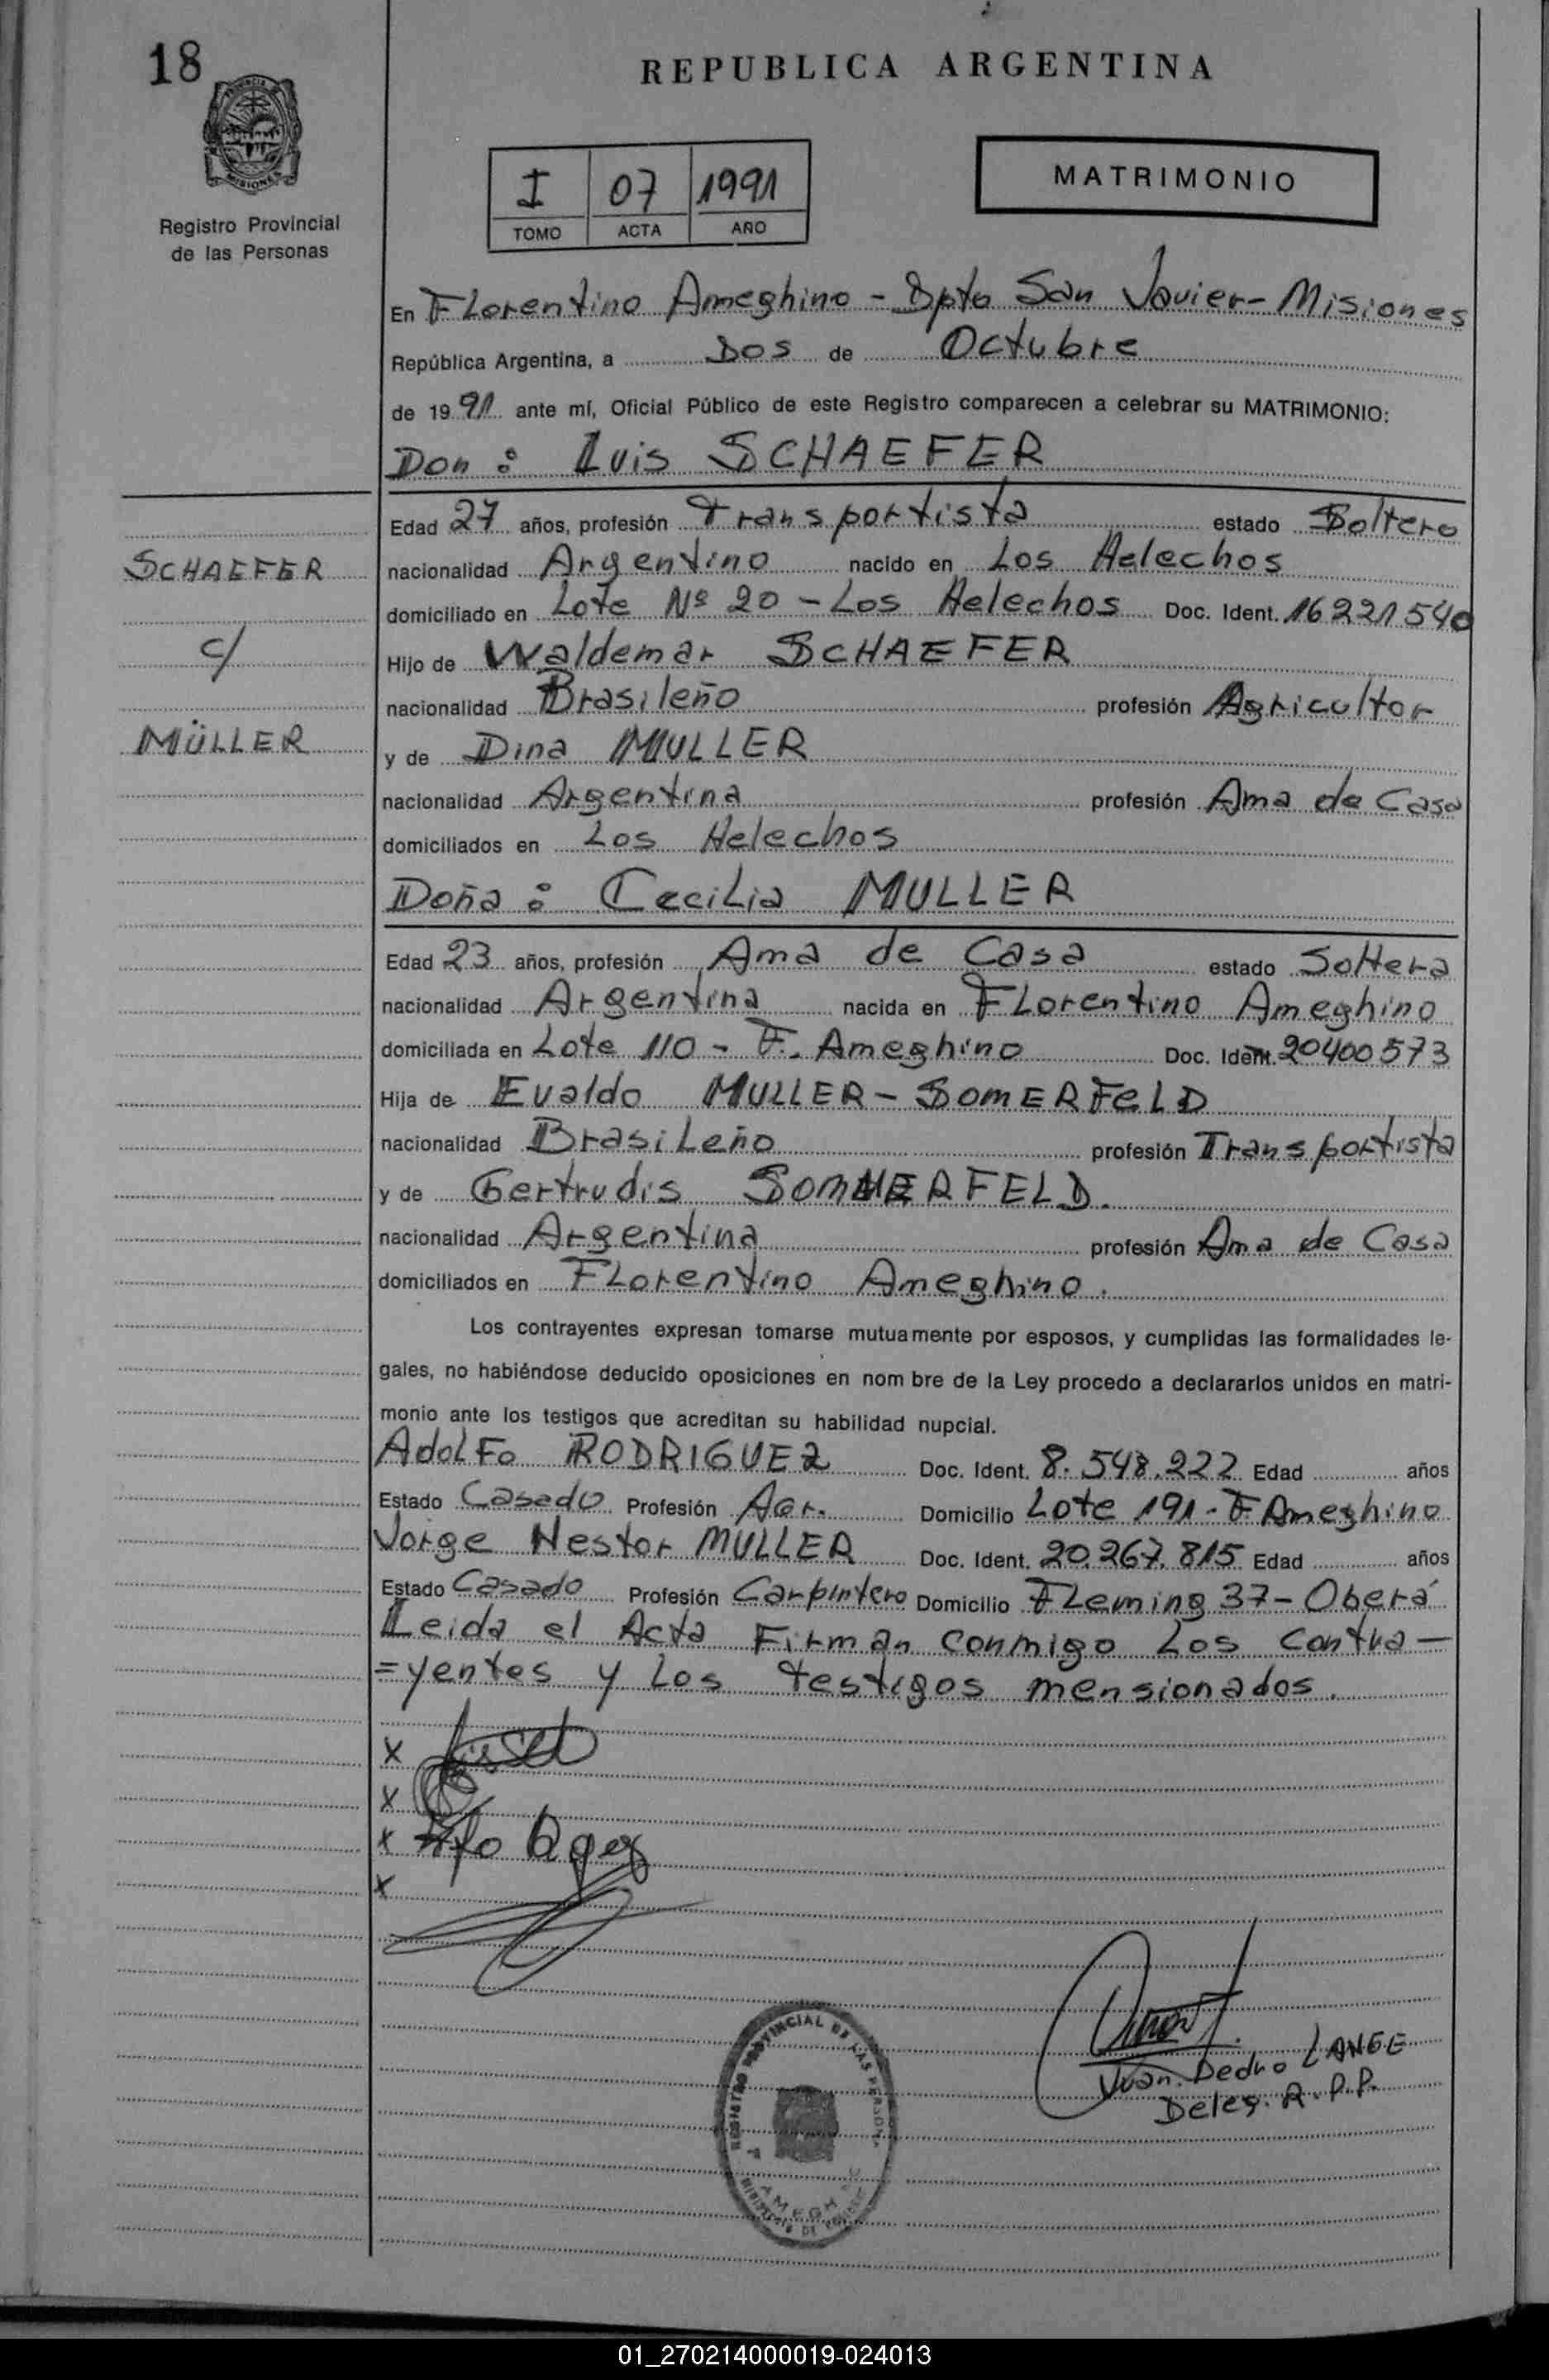 18
REPUBLICA ARGENTINA
PROVINCIA
MISIONES
Registro Provincial
de las Personas
I 07 1991
TOMO ACTA AÑO
MATRIMONIO
En Florentino Ameghino - Dpto San Javier - Misiones
República Argentina, a Dos de Octubre
de 1991 ante mí, Oficial Público de este Registro comparecen a celebrar su MATRIMONIO:
Don : Luis SCHAEFER
Edad 27 años, profesión Transportista estado Soltero
SCHAEFER
nacionalidad Argentino nacido en Los Helechos
domiciliado en Lote Nº 20 - Los Helechos Doc. Ident. 16221540
c/
Hijo de Waldemar SCHAEFER
nacionalidad Brasileño profesión Agricultor
MÜLLER
y de Dina MULLER
nacionalidad Argentina profesión Ama de Casa
domiciliados en Los Helechos
Doña : Cecilia MULLER
Edad 23 años, profesión Ama de Casa estado Soltera
nacionalidad Argentina nacida en Florentino Ameghino
domiciliada en Lote 110 - F. Ameghino Doc. Ident. 20400573
Hija de Evaldo MULLER - SOMERFELD
nacionalidad Brasileño profesión Transportista
y de Gertrudis SOMMERFELD.
nacionalidad Argentina profesión Ama de Casa
domiciliados en Florentino Ameghino.
Los contrayentes expresan tomarse mutuamente por esposos, y cumplidas las formalidades le-
gales, no habiéndose deducido oposiciones en nom bre de la Ley procedo a declararlos unidos en matri-
monio ante los testigos que acreditan su habilidad nupcial.
Adolfo RODRIGUEZ Doc. Ident. 8.548.222 Edad años
Estado Casado Profesión Agr. Domicilio Lote 191 - F Ameghino
Jorge Nestor MULLER Doc. Ident. 20.267.815 Edad años
Estado Casado Profesión Carpintero Domicilio Fleming 37 - Oberá
Leida el Acta Firman conmigo Los Contra-
=yentes y Los testigos mensionados.
X
X
X
X
Juan Pedro LANGE
Deleg. R.P.P.
REGISTRO PROVINCIAL DE LAS PERSONAS
01_270214000019-024013